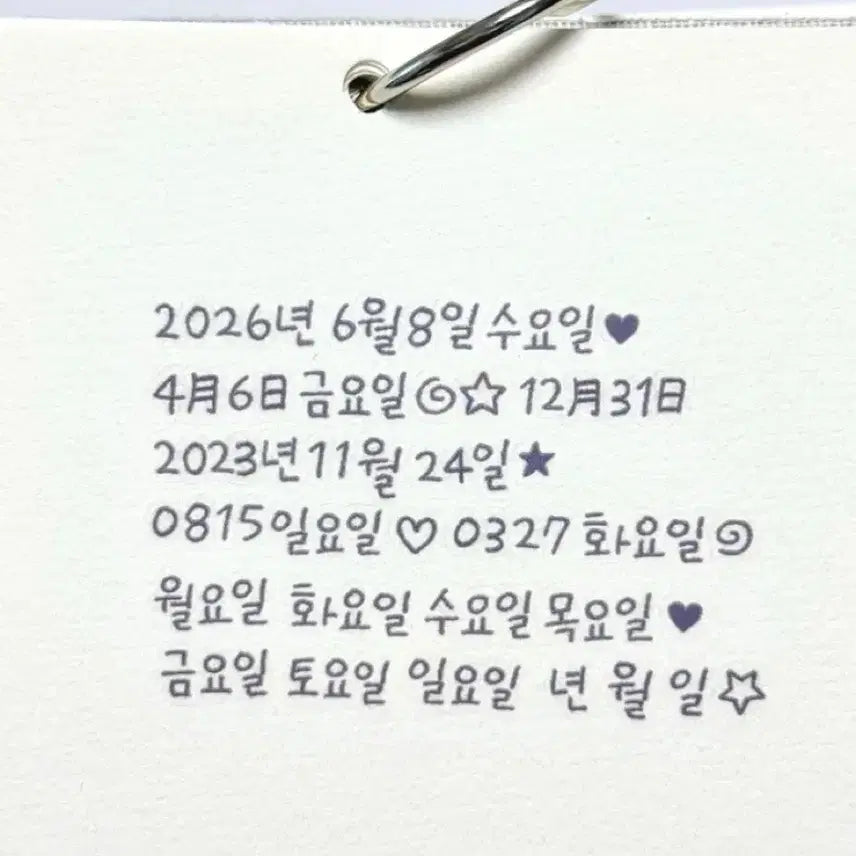 2026년 6월8일 수요일♥
4月6日 금요일☆ 12月31日
2023년11월 24일★
0815일요일♡ 0327 화요일
월요일 화요일 수요일 목요일 ♥
금요일 토요일 일요일 년 월 일☆